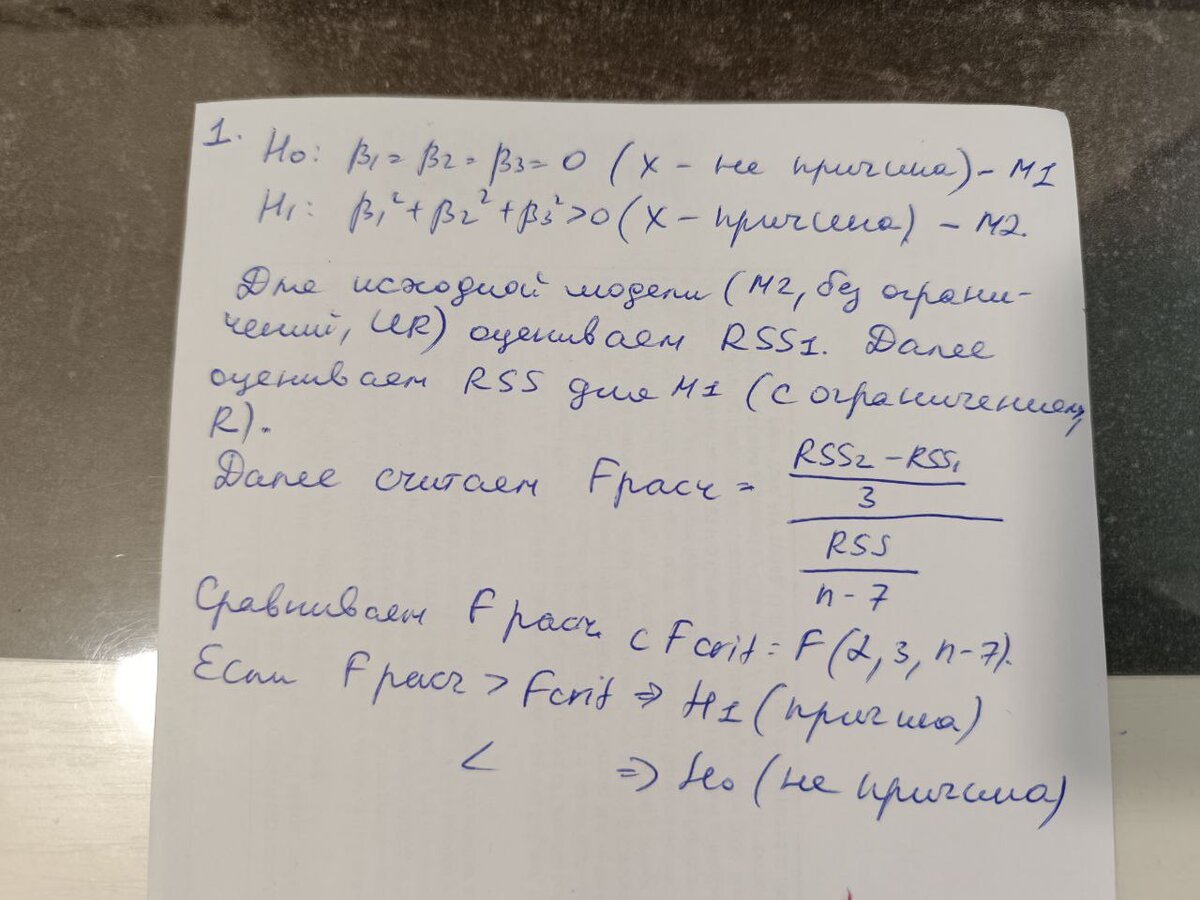 1. H₀: β₁ = β₂ = β₃ = 0 (X - не причина) - M1
H₁: β₁² + β₂² + β₃² > 0 (X - причина) - M2.
Для исходной модели (M2, без ограни-
чений, UR) оцениваем RSS1. Далее
оцениваем RSS для M1 (с ограничением,
R).
Далее считаем Fрасч =
RSS₂ - RSS₁
3
RSS
n - 7
Сравниваем Fрасч с Fcrit = F(2, 3, n-7).
Если Fрасч > Fcrit ⇒ H1 (причина)
< ⇒ H₀ (не причина)